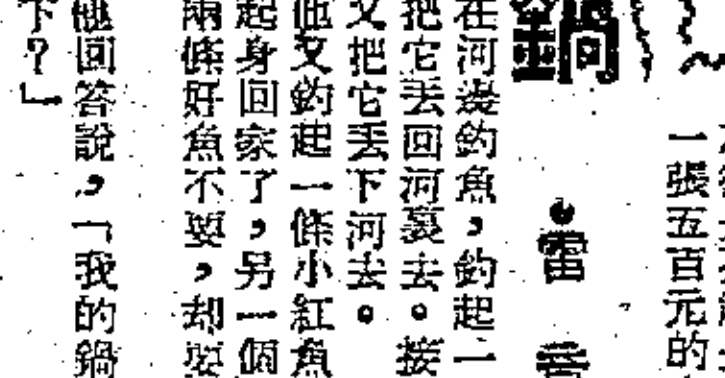 一張五百元的
雷音
在河邊釣魚，釣起一
把它丟回河裏去。接
又把它丟下河去。
他又釣起一條小紅魚
起身回家了，另一個
兩條好魚不要，却要
他回答說，「我的鍋
下？」